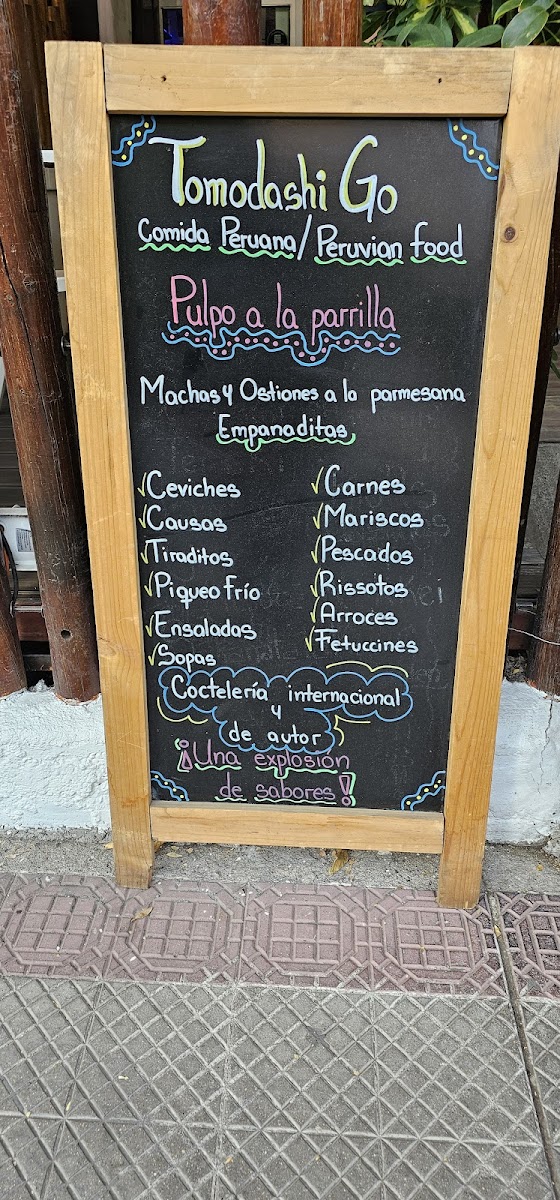 Tomodashi Go
Comida Peruana/Peruvian food
Pulpo a la parrilla
Machas y Ostiones a la parmesana
Empanaditas
✓Ceviches
✓Causas
✓Tiraditos
✓Piqueo frío
✓Ensaladas
✓Sopas
✓Carnes
✓Mariscos
✓Pescados
✓Rissotos
✓Arroces
✓Fetuccines
Coctelería internacional
y
de autor
¡Una explosión
de sabores!